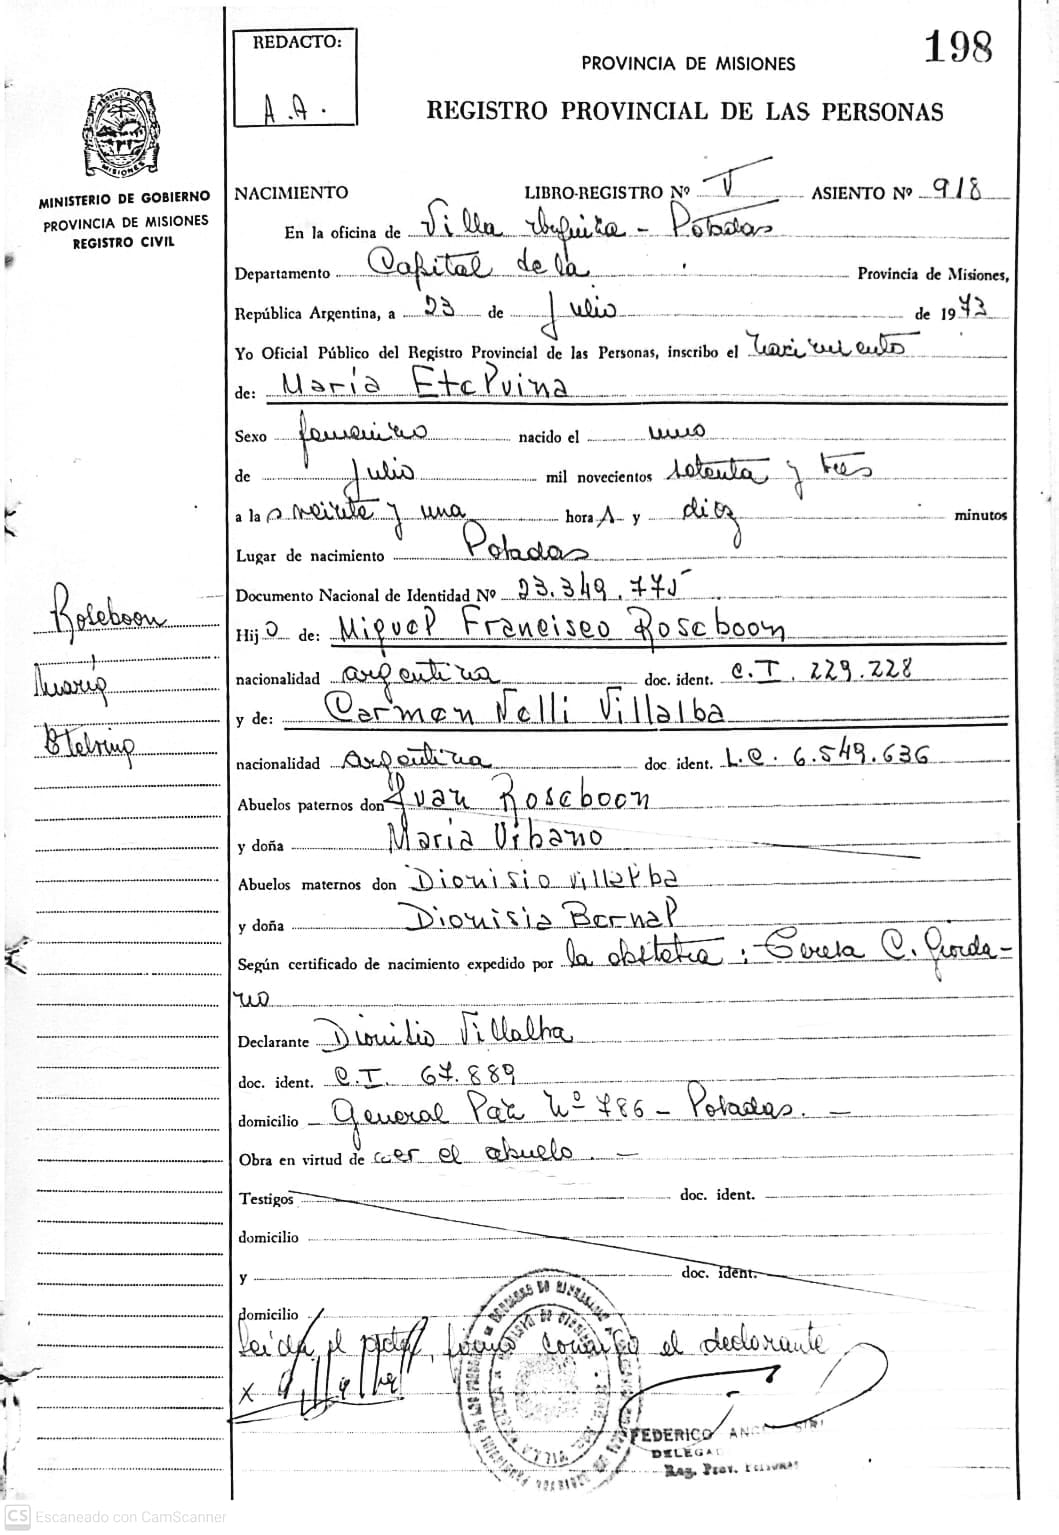 198
REDACTO:
A.A.
PROVINCIA DE MISIONES
REGISTRO PROVINCIAL DE LAS PERSONAS
MISIONES
MINISTERIO DE GOBIERNO
PROVINCIA DE MISIONES
REGISTRO CIVIL
NACIMIENTO LIBRO-REGISTRO Nº V ASIENTO Nº 918
En la oficina de Villa Urquiza - Posadas
Departamento Capital de la Provincia de Misiones,
República Argentina, a 23 de Julio de 1973
Yo Oficial Público del Registro Provincial de las Personas, inscribo el nacimiento
de: María Etelvina
Sexo femenino nacido el uno
de Julio mil novecientos setenta y tres
a las veinte y una hora s y diez minutos
Lugar de nacimiento Posadas
Documento Nacional de Identidad Nº 23.349.775
Hija de: Miguel Francisco Roseboon
nacionalidad argentina doc. ident. C.I. 229.228
y de: Carmen Nelli Villalba
nacionalidad argentina doc ident. L.C. 6.549.636
Abuelos paternos don Juan Roseboon
y doña María Urbano
Abuelos maternos don Dionisio Villalba
y doña Dionisia Bernal
Según certificado de nacimiento expedido por la obstetra: Teresa C. Giorda-
no
Declarante Dionisio Villalba
doc. ident. C.I. 67.889
domicilio General Paz Nº 786 - Posadas. -
Obra en virtud de ser el abuelo. -
Testigos doc. ident.
domicilio
y doc. ident.
domicilio
Leída el acta, firma conmigo el declarante
x
FEDERICO
DELEGA
Reg. Prov. Personas
Roseboon
María
Etelvina
CS Escaneado con CamScanner